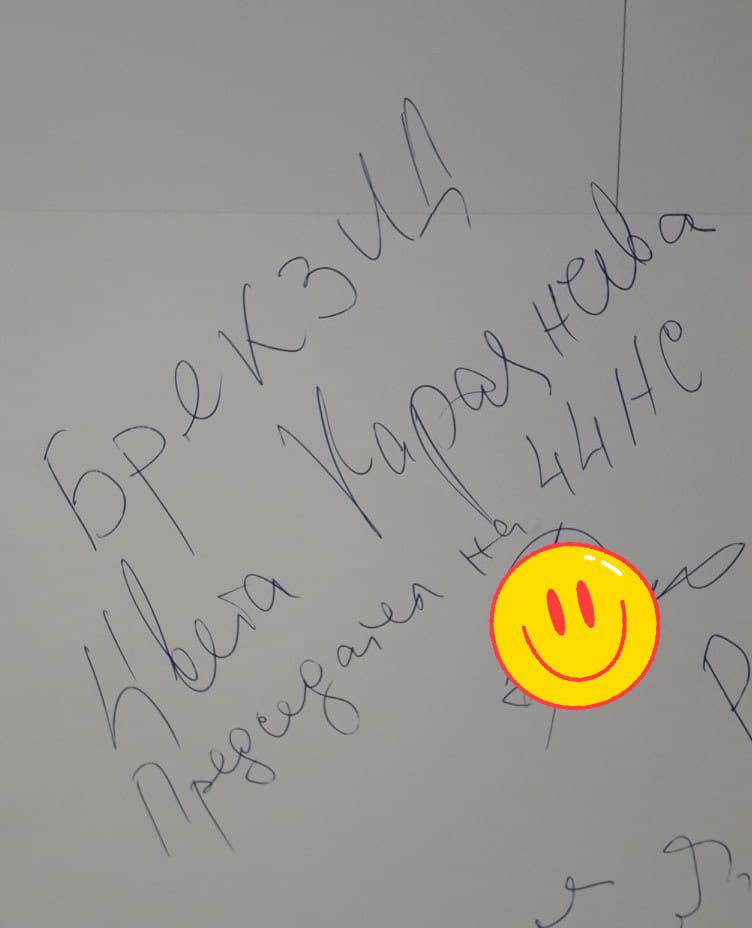 Брекзид
Цвета Караянчева
Председател на 44НС